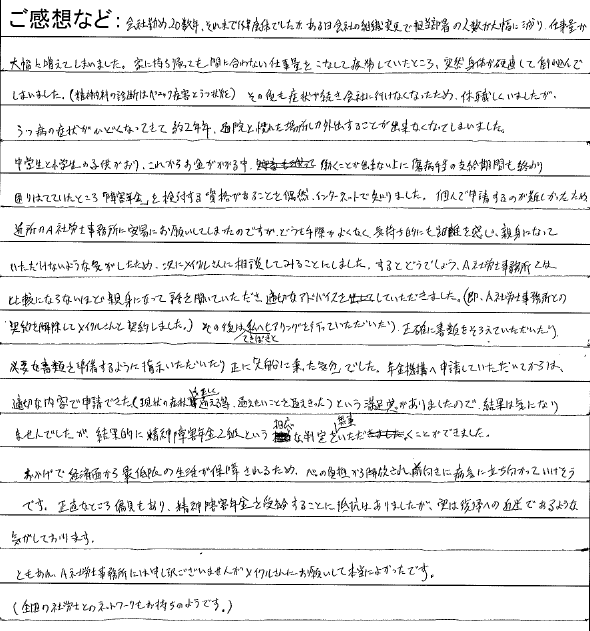 ご感想など：会社勤め20数年、それまで健康体でしたが、ある日会社の組織変更で担当部署の人数が大幅に減り、仕事量が
大幅に増えてしまいました。家に持ち帰っても間に合わない仕事量をこなして疲弊していたところ、突然身体が硬直して倒れ込んで
しまいました。（精神科の診断はパニック障害とうつ状態）その後も症状が続き会社に行けなくなったため、休職していましたが、
うつ病の症状がひどくなってきて約2年半、通院と慣れた場所しか外出することが出来なくなってしまいました。
中学生と小学生の子供がおり、これからお金がかかる中、働くことが出来ない上に傷病手当の支給期間も終わり
困りはてていたところ「障害年金」を検討する資格があることを偶然、インターネットで知りました。個人で申請するのが難しかったため
近所のA社労士事務所に安易にお願いしてしまったのですが、どうも手際がよくなく、気持ち的にも距離を感じ、親身になって
いただけないような気がしたため、次にメイクルさんに相談してみることにしました。するとどうでしょう、A社労士事務所とは
比較にならないほど親身になって話を聞いていただき、適切なアドバイスを出していただきました。（即、A社労士事務所との
契約を解除してメイクルさんと契約しました。）その後は、私へヒアリングを行っていただいたり、正確に書類をそろえていただいたり
てきぱきと
必要な書類を準備するように指示いただいたり正に大船に乗った気分でした。年金機構へ申請していただいてからは、
適切な内容で申請できた（現状の症状を正しく伝える等、伝えたいことを伝えきった）という満足感がありましたので、結果は気になり
ませんでしたが、結果的に精神障害年金2級という相応な判定をいただくことができました。
おかげで経済面から最低限の生活が保障されるため、心の負担から解放され、前向きに病気に立ち向かっていけそう
です。正直なところ偏見もあり、精神障害年金を受給することに抵抗はありましたが、実は復帰への近道であるような
気がしております。
ともあれ、A社労士事務所には申し訳ございませんがメイクルさんにお願いして本当によかったです。
（全国の社労士とのネットワークもお持ちのようです。）